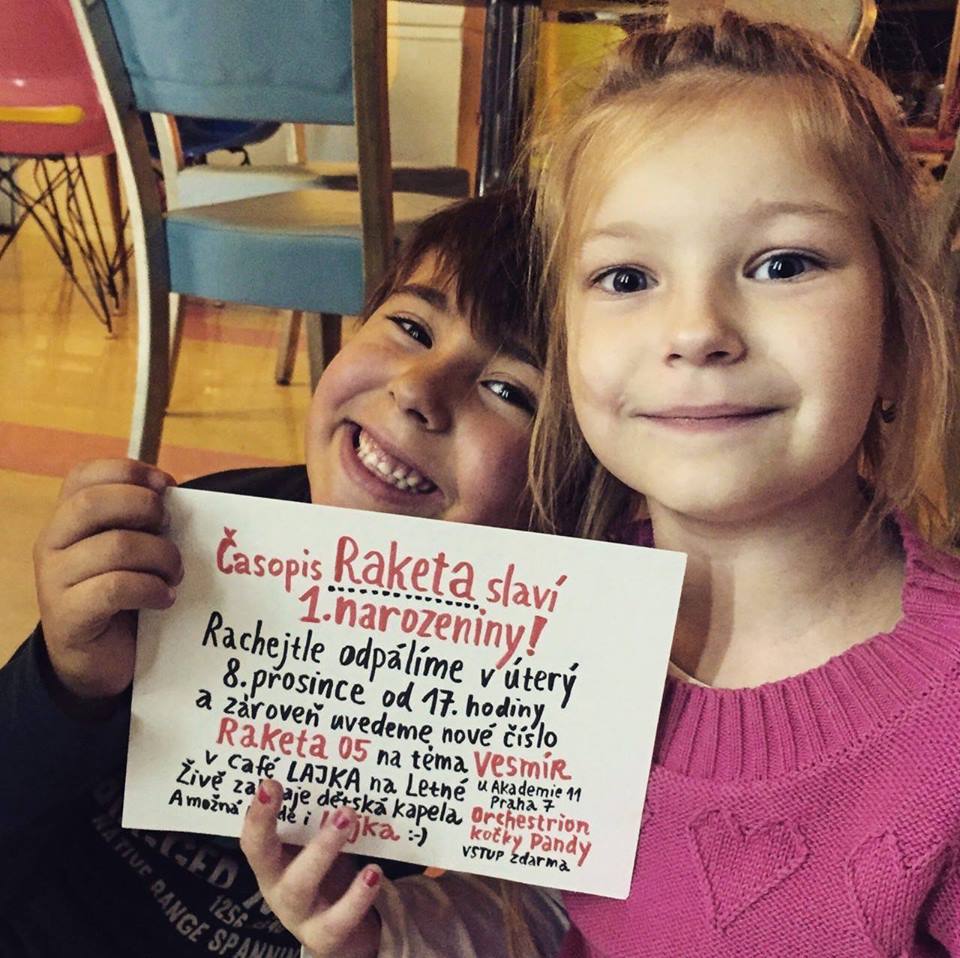 Časopis Raketa slaví
1.narozeniny!
Rachejtle odpálíme v úterý
8.prosince od 17. hodiny
a zároveň uvedeme nové číslo
Raketa 05 na téma Vesmír
v café LAJKA na Letné
U Akademie 11
Praha 7
Živě dětská kapela
Orchestrion
kočky Pandy
A možná i :-)
VSTUP zdarma
1256
NATIVE RANGE SPANNIN